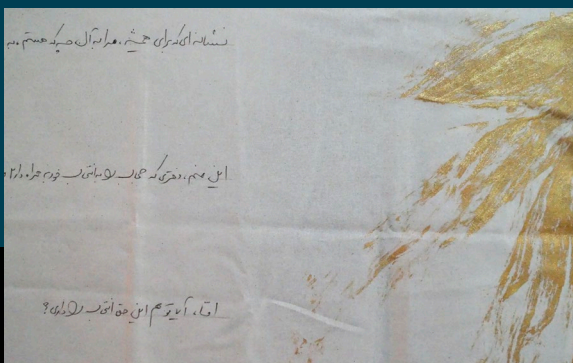 نشانه ای که برای همیشه، مرا به آن چه که هستم
این منم، دختری که حجاب را به انتخاب خود به همراه دارد
اما، آیا تو هم این حق انتخاب را داری؟